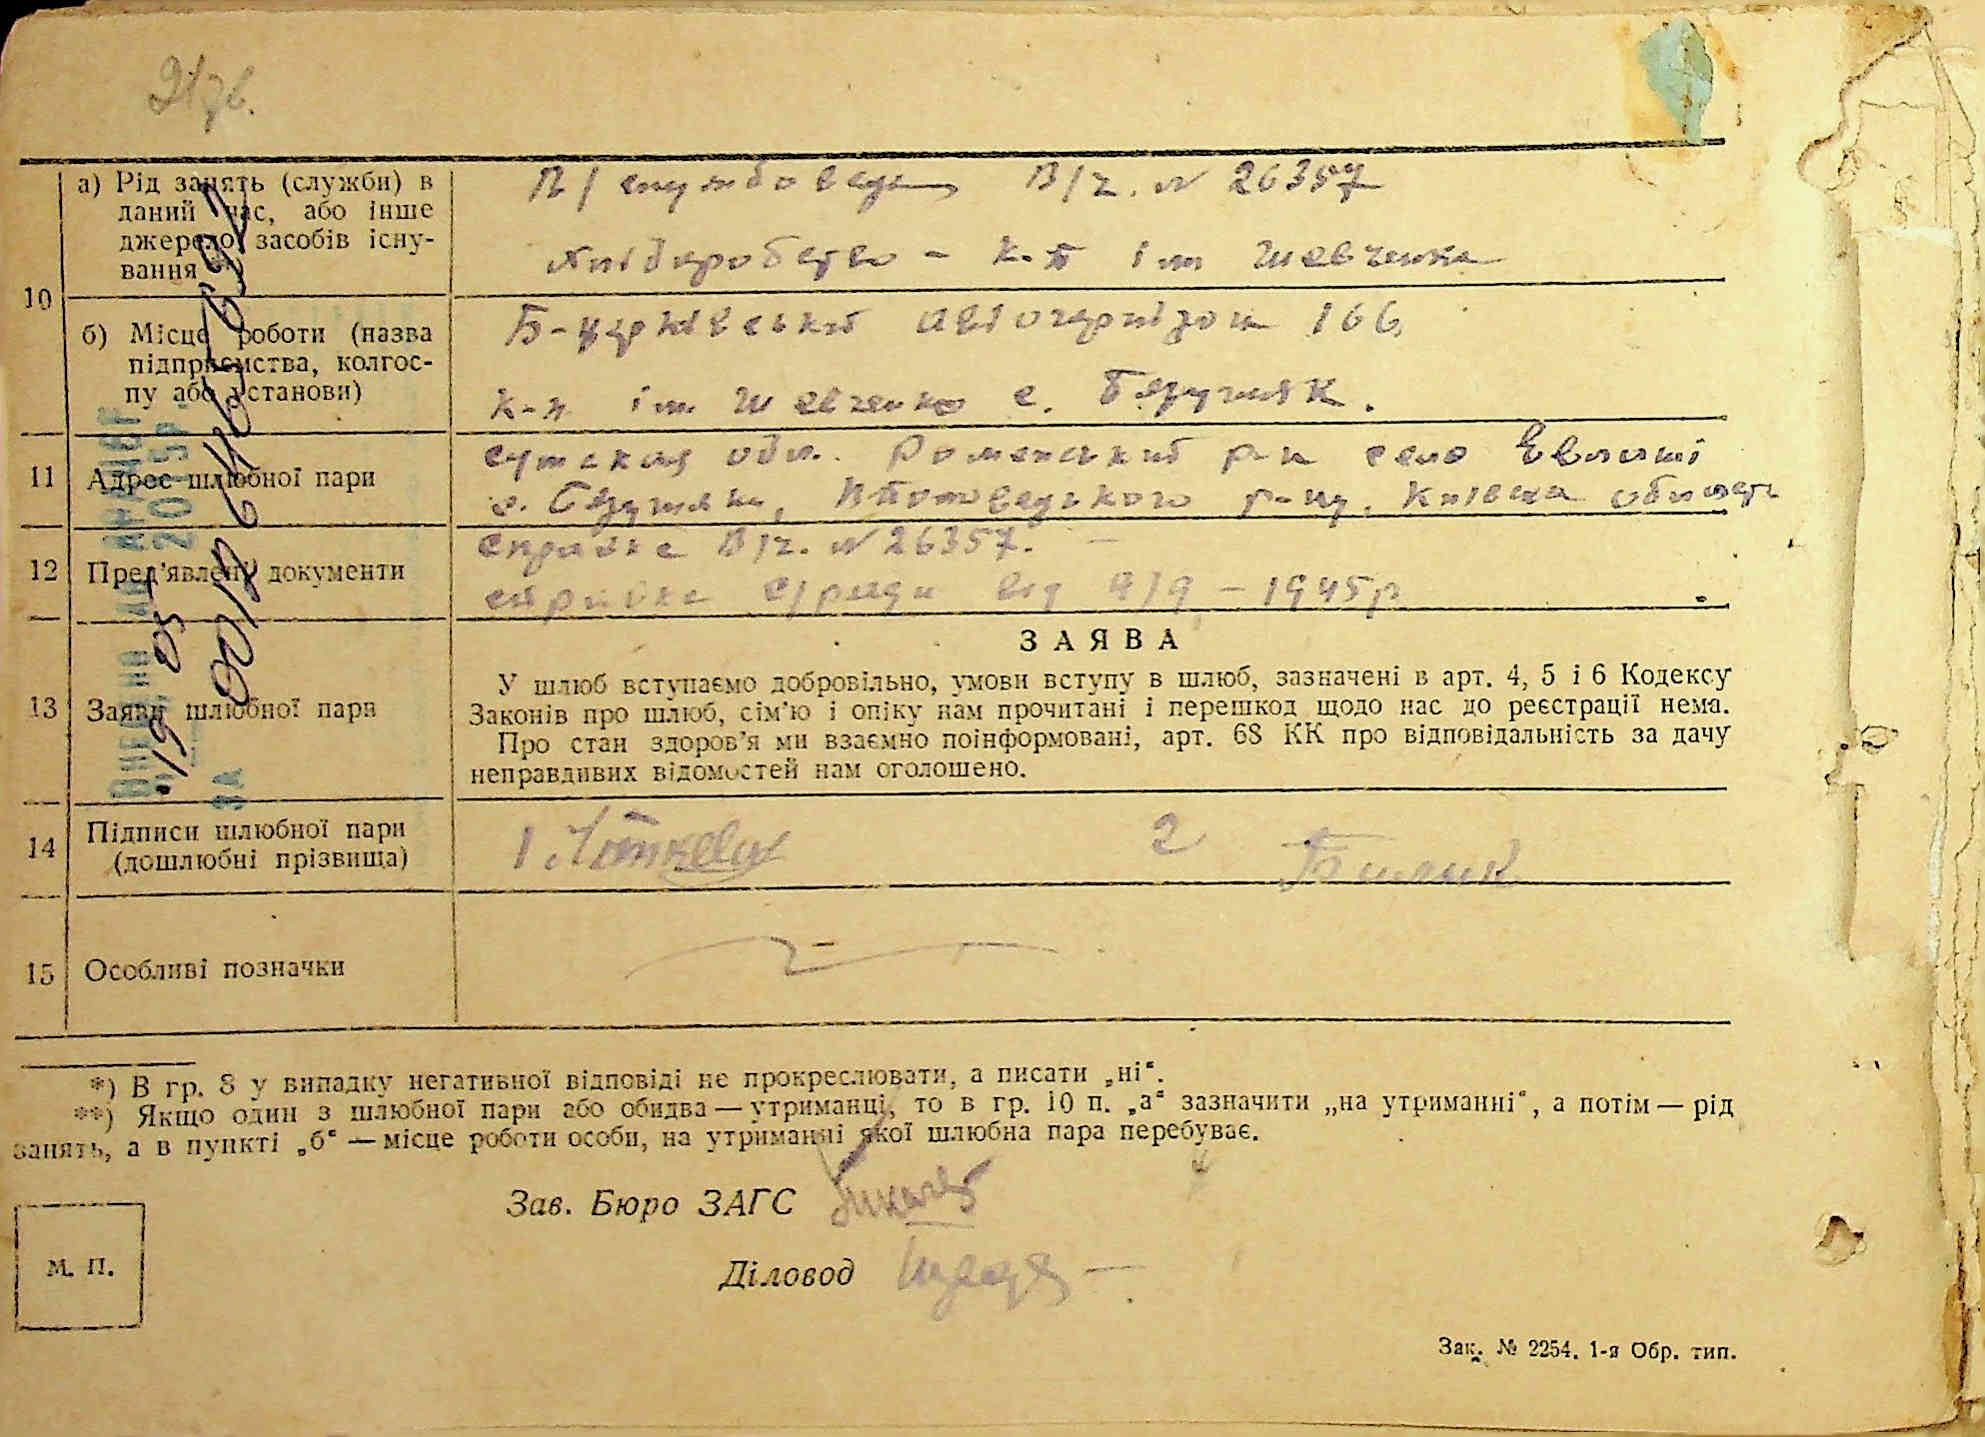 10
а) Рід занять (служби) в
даний час, або інше
джерело засобів існу-
вання **
В/ службовець В/ч. N 26357
хліборобство - к-п ім Шевченка
б) Місце роботи (назва
підприємства, колгос-
пу або установи)
Б-церківський авіогарнізон 166,
к-п ім Шевченко с.
11 Адрес шлюбної пари
Сумская обл. Роменський р-н село
с. р-ну, Київска область
12 Пред'явлені документи
справка В/ч. N 26357. —
справка с/ради від 9/9 - 1945р
13 Заяви шлюбної пари
ЗАЯВА
У шлюб вступаємо добровільно, умови вступу в шлюб, зазначені в арт. 4, 5 і 6 Кодексу
Законів про шлюб, сім'ю і опіку нам прочитані і перешкод щодо нас до реєстрації нема.
Про стан здоров'я ми взаємно поінформовані, арт. 68 КК про відповідальність за дачу
неправдивих відомостей нам оголошено.
14 Підписи шлюбної пари
(дошлюбні прізвища)
1 2 Билик
15 Особливі позначки
*) В гр. 8 у випадку негативної відповіді не прокреслювати, а писати „ні“.
**) Якщо один з шлюбної пари або обидва — утриманці, то в гр. 10 п. „а“ зазначити „на утриманні“, а потім — рід
занять, а в пункті „б“ — місце роботи особи, на утриманні якої шлюбна пара перебуває.
Зав. Бюро ЗАГС
Діловод
М. П.
Зак. № 2254. 1-я Обр. тип.
2015р.
ЗА